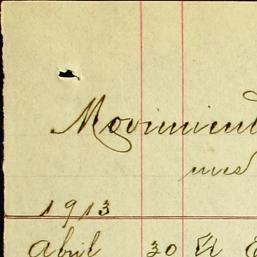 Movimient
mes
1913
Abril 30 El